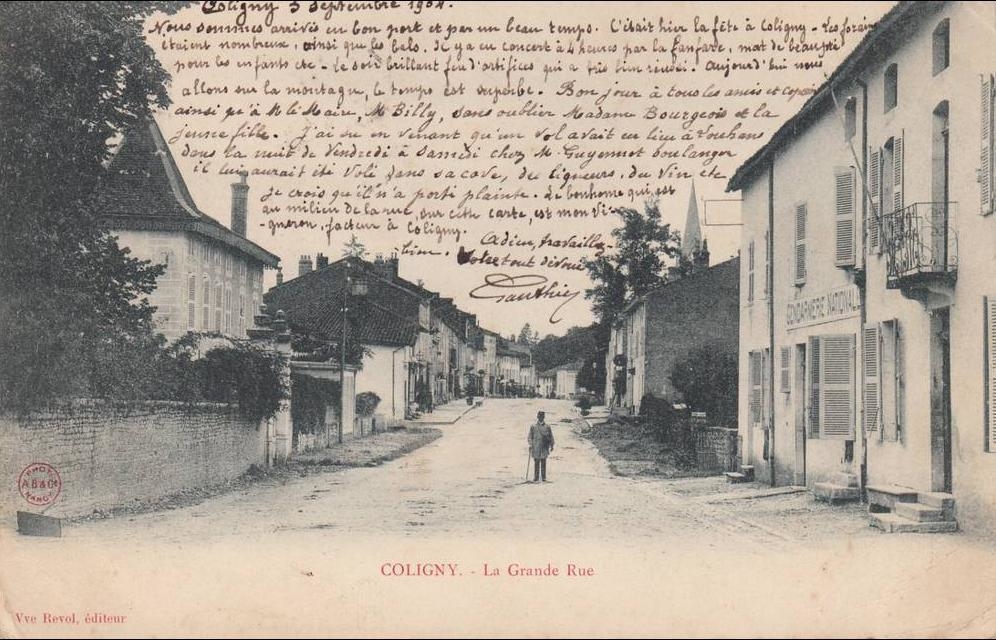 Coligny 5 Septembre 1904.
Nous sommes arrivés en bon port et par un beau temps. C'était hier la fête à Coligny - Les forains
étaient nombreux, ainsi que les bals. Il y a eu concert à 4 heures par la fanfare, mat de beaupré
pour les enfants etc - Le soir brillant feu d'artifices qui a très bien réussi. Aujourd'hui nous
allons sur la montagne, le temps est superbe. Bonjour à tous les amis et copains
ainsi qu'à M. le Maire, M. Billy, sans oublier Madame Bourgeois et la
jeune fille. J'ai su en venant qu'un vol avait eu lieu à Louhans
dans la nuit de Vendredi à Samedi chez M. Guyennot boulanger
il lui aurait été volé dans sa cave, des liqueurs, du Vin etc
je crois qu'il n'a porté plainte. Le bonhome qui est
au milieu de la rue, sur cette carte, est mon Vi-
-gneron, facteur à Coligny.
Adieu, travaillez
bien. Votre tout dévoué
Gauthier
GENDARMERIE NATIONALE
PHOT
A.B & Cie
NANCY
COLIGNY. - La Grande Rue
Vve Revol, éditeur